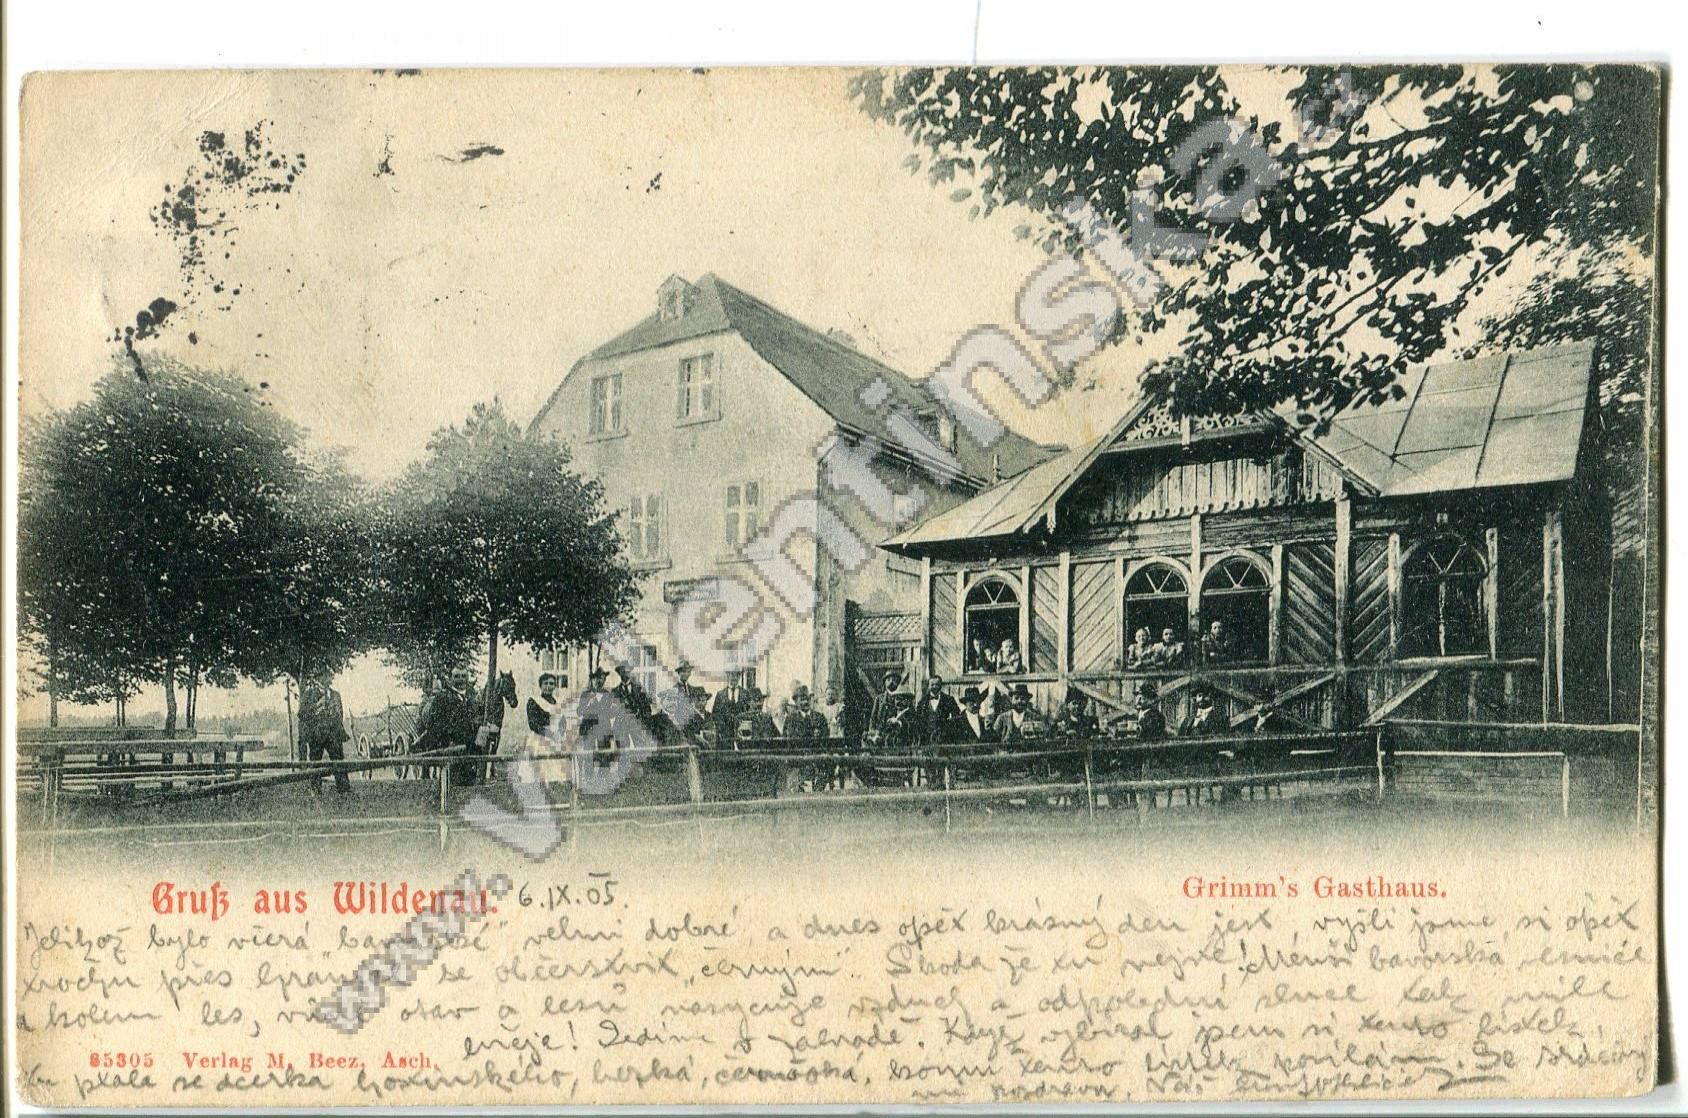 Gruß aus Wildenau. 6.IX.05.
Grimm's Gasthaus.
Jelikož bylo včerá "bavorské" velmi dobré, a dnes opět krásný den jest, vyšli jsme si opět
trochu přes hranice se občerstvit "černým". Škoda že tu nejste! Menší bavorská vesnice
a kolem les, vůně otav a lesů nasycuje vzduch a odpolední slunce tak mile
hřeje! Sedíme v zahradě. Když vybíral jsem si tento lístek,
ptala se dcerka hostinského, hezká, černooká, komu tento lístek posílám. Se srdečným
pozdravem Váš
65305 Verlag M. Beez, Asch.
www.valentinska.cz